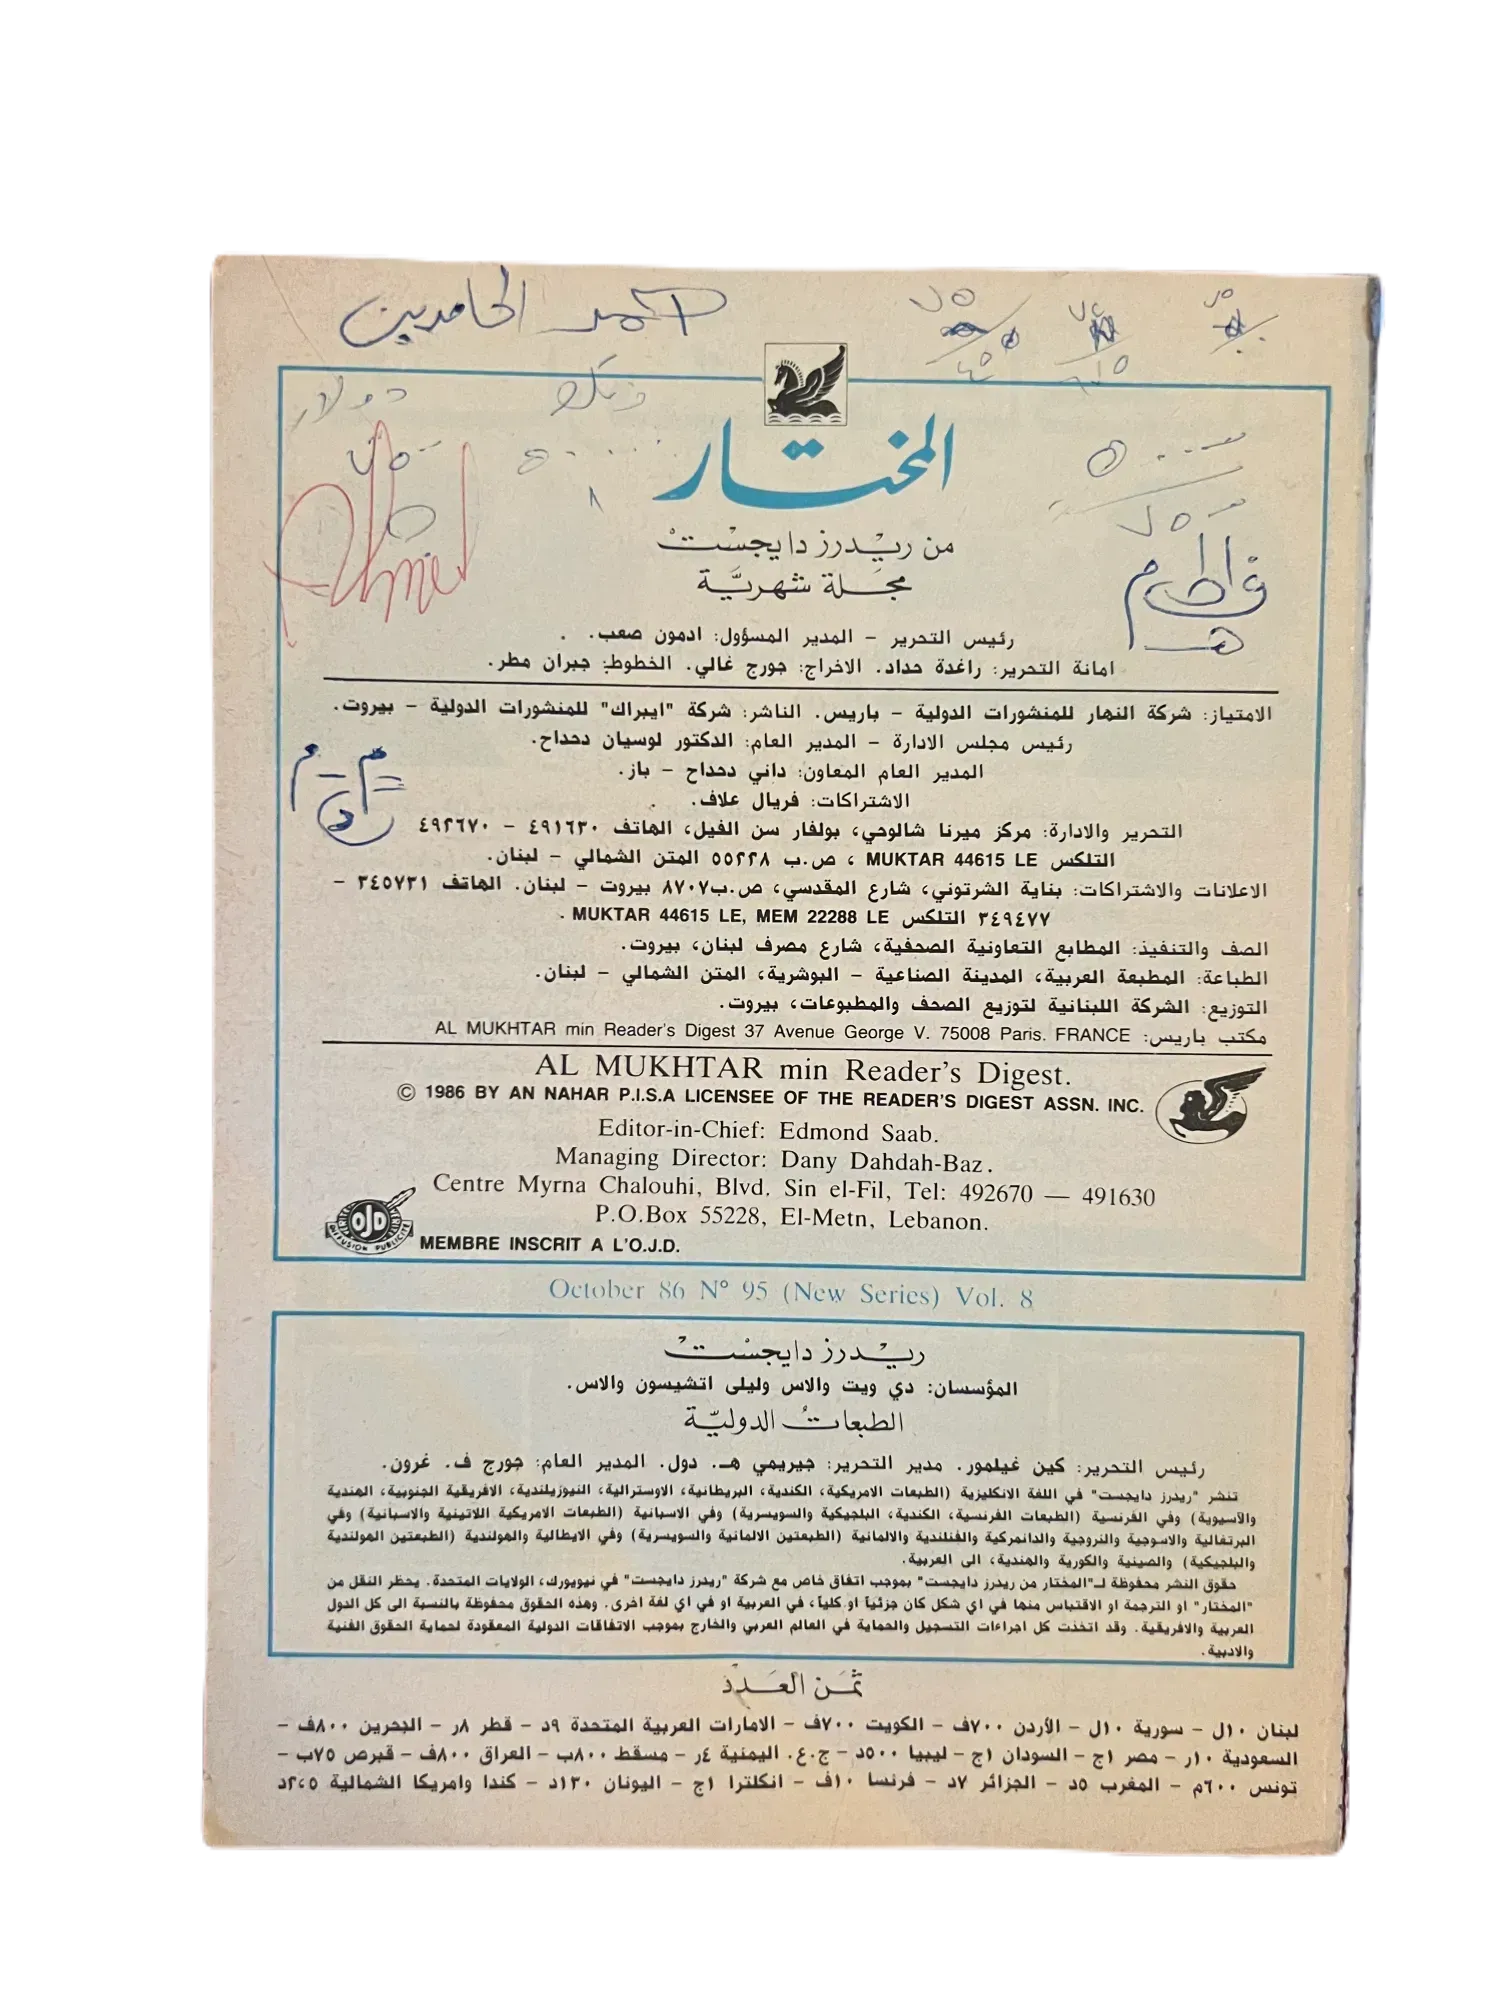 احمد الحامدين
دولار
Ahmed
فاطمه
المختار
من ريدرز دايجست
مجلة شهرية
رئيس التحرير – المدير المسؤول: ادمون صعب.
امانة التحرير: راغدة حداد. الاخراج: جورج غالي. الخطوط: جبران مطر.
الامتياز: شركة النهار للمنشورات الدولية – باريس. الناشر: شركة "ايبراك" للمنشورات الدولية – بيروت.
رئيس مجلس الادارة – المدير العام: الدكتور لوسيان دحداح.
المدير العام المعاون: داني دحداح – باز.
الاشتراكات: فريال علاف.
التحرير والادارة: مركز ميرنا شالوحي، بولفار سن الفيل، الهاتف ٤٩١٦٣٠ – ٤٩٢٦٧٠
التلكس MUKTAR 44615 LE ، ص.ب ٥٥٢٢٨ المتن الشمالي – لبنان.
الاعلانات والاشتراكات: بناية الشرتوني، شارع المقدسي، ص.ب٨٧٠٧ بيروت – لبنان. الهاتف ٣٤٥٧٣١ –
٣٤٩٤٧٧ التلكس MUKTAR 44615 LE, MEM 22288 LE .
الصف والتنفيذ: المطابع التعاونية الصحفية، شارع مصرف لبنان، بيروت.
الطباعة: المطبعة العربية، المدينة الصناعية – البوشرية، المتن الشمالي – لبنان.
التوزيع: الشركة اللبنانية لتوزيع الصحف والمطبوعات، بيروت.
مكتب باريس: AL MUKHTAR min Reader's Digest 37 Avenue George V. 75008 Paris. FRANCE
AL MUKHTAR min Reader's Digest.
© 1986 BY AN NAHAR P.I.S.A LICENSEE OF THE READER'S DIGEST ASSN. INC.
Editor-in-Chief: Edmond Saab.
Managing Director: Dany Dahdah-Baz.
Centre Myrna Chalouhi, Blvd. Sin el-Fil, Tel: 492670 — 491630
P.O.Box 55228, El-Metn, Lebanon.
OJD
DIFFUSION PUBLICITE
MEMBRE INSCRIT A L'O.J.D.
October 86 N° 95 (New Series) Vol. 8
ريدرز دايجست
المؤسسان: دي ويت والاس وليلى اتشيسون والاس.
الطبعات الدولية
رئيس التحرير: كين غيلمور. مدير التحرير: جيريمي هـ. دول. المدير العام: جورج ف. غرون.
تنشر "ريدرز دايجست" في اللغة الانكليزية (الطبعات الاميركية، الكندية، البريطانية، الاوسترالية، النيوزيلندية، الافريقية الجنوبية، الهندية
والآسيوية) وفي الفرنسية (الطبعات الفرنسية، الكندية، البلجيكية والسويسرية) وفي الاسبانية (الطبعات الاميركية اللاتينية والاسبانية) وفي
البرتغالية والاسوجية والنروجية والدانمركية والفنلندية والالمانية (الطبعتين الالمانية والسويسرية) وفي الايطالية والهولندية (الطبعتين الهولندية
والبلجيكية) والصينية والكورية والهندية، الى العربية.
حقوق النشر محفوظة لـ"المختار من ريدرز دايجست" بموجب اتفاق خاص مع شركة "ريدرز دايجست" في نيويورك، الولايات المتحدة. يحظر النقل من
"المختار" او الترجمة او الاقتباس منها في اي شكل كان جزئياً او كلياً، في العربية او في اي لغة اخرى. وهذه الحقوق محفوظة بالنسبة الى كل الدول
العربية والافريقية. وقد اتخذت كل اجراءات التسجيل والحماية في العالم العربي والخارج بموجب الاتفاقات الدولية المعقودة لحماية الحقوق الفنية
والادبية.
ثمن العدد
لبنان ١٠ل – سورية ١٠ل – الأردن ٧٠٠ف – الكويت ٧٠٠ف – الامارات العربية المتحدة ٩د – قطر ٨ر – البحرين ٨٠٠ف –
السعودية ١٠ر – مصر ١ج – السودان ١ج – ليبيا ٥٠٠د – ج.ع. اليمنية ٤ر – مسقط ٨٠٠ب – العراق ٨٠٠ف – قبرص ٧٥ب –
تونس ٦٠٠م – المغرب ٥د – الجزائر ٧د – فرنسا ١٠ف – انكلترا ١ج – اليونان ١٣٠د – كندا وامريكا الشمالية ٢،٥د